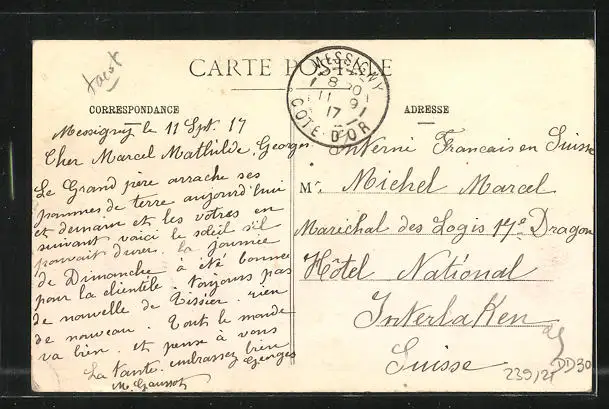 tarot
CARTE POSTALE
MESSIGNY
8 30
11 9
17
CÔTE-D'OR
CORRESPONDANCE
ADRESSE
Messigny le 11 Spt. 17
Cher Marcel Mathilde, Georges
Le Grand père arrache ses
pommes de terre aujourd'hui
et demain et les vôtres en
suivant voici le soleil s'il
pouvait durer. la journée
de Dimanche a été bonne
pour la clientèle. toujours pas
de nouvelle de Tissier. rien
de nouveau. Tout le monde
va bien. et pense à vous
La tante. embrassez bien
Georges
M. Gaussot
Interné Francais en Suisse
Mr. Michel Marcel
Maréchal des Logis 17e Dragon
Hôtel National
Interlaken
Suisse
239/21
DD30